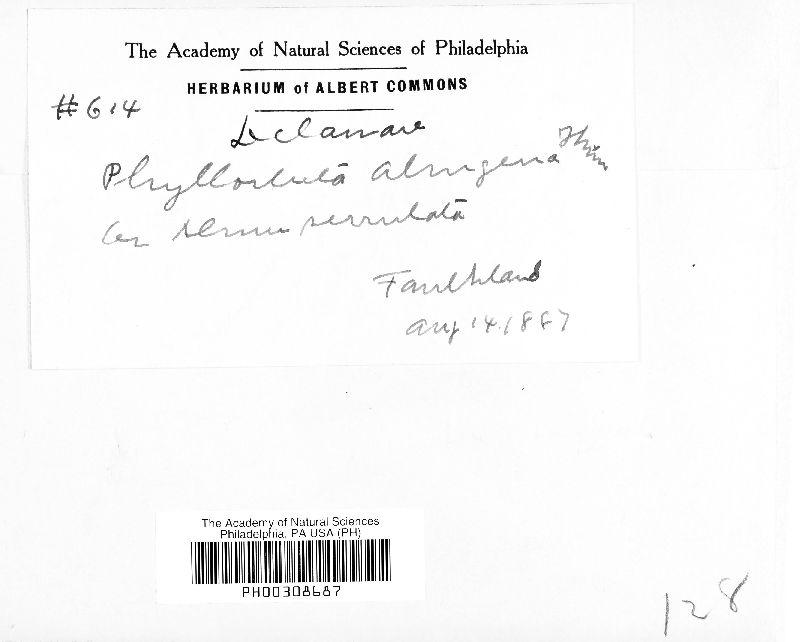 The Academy of Natural Sciences of Philadelphia
HERBARIUM of ALBERT COMMONS
#614
Delaware
Phyllosticta alnigena Thüm
on Alnus serrulata
Faulkland
Aug 14. 1887
The Academy of Natural Sciences
Philadelphia, PA USA (PH)
PH00308687
128